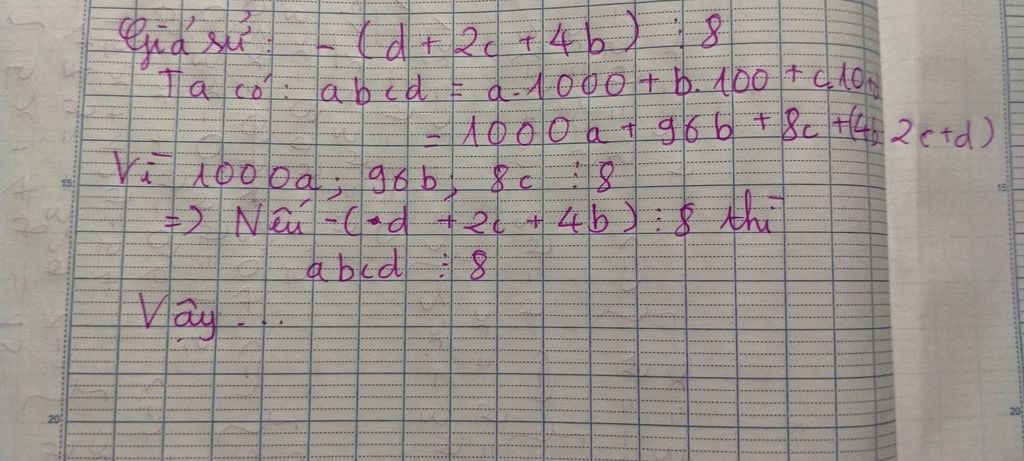 Giả sử: - (d + 2c + 4b) ⋮ 8
Ta có: abcd = a.1000 + b.100 + c.10
= 1000a + 96b + 8c + (4b 2c+d)
Vì 1000a; 96b; 8c ⋮ 8
=> Nếu - (d + 2c + 4b) ⋮ 8 thì
abcd ⋮ 8
Vậy ...
15
20
15
20